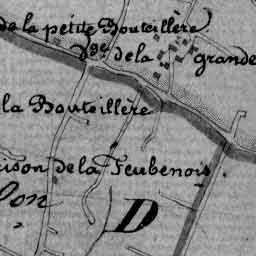 de la petite Bouteillère
de la grande
la Bouteillère
ison de la Feubenois.
lon
D